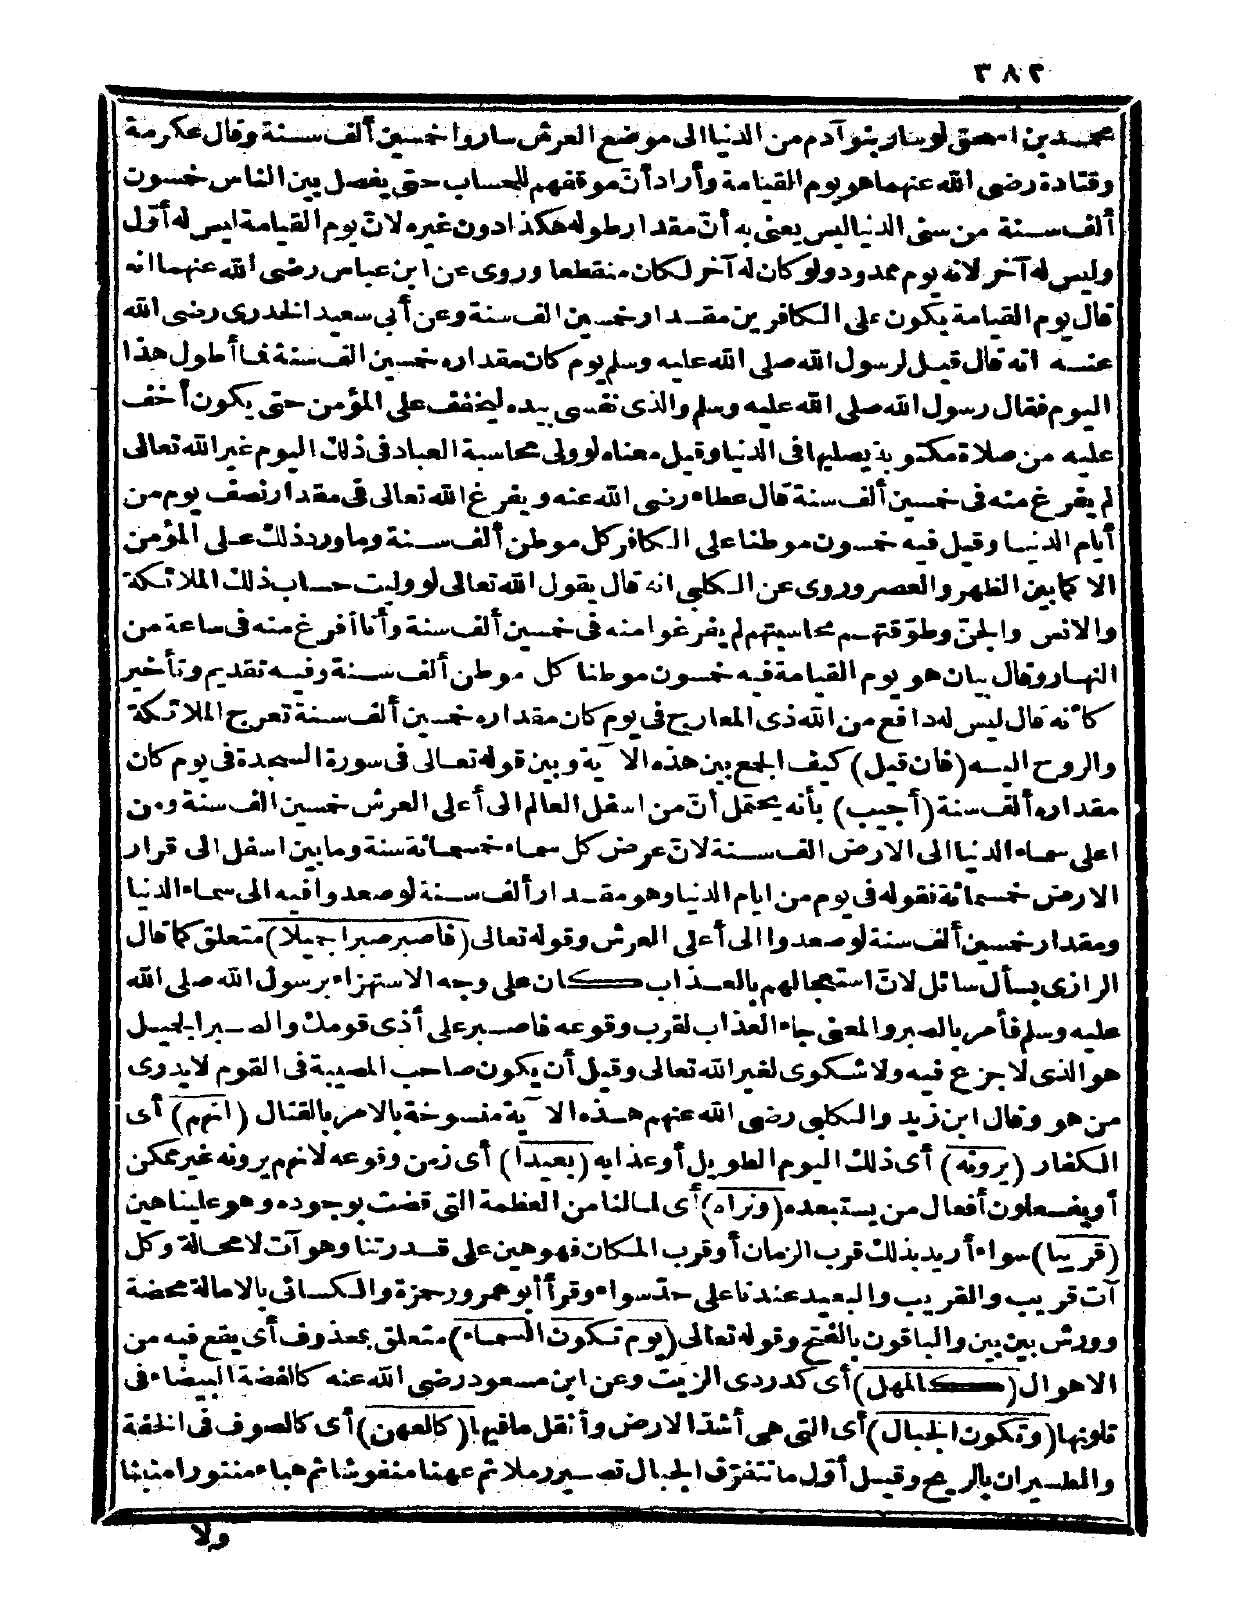 ٣٨٢
محمد بن اسحق لو سار بنو آدم من الدنيا الى موضع العرش ساروا خمسين ألف سنة وقال عكرمة
وقتادة رضى الله عنهما هو يوم القيامة وأراد أنّ موقفهم للحساب حتى يفصل بين الناس خمسون
ألف سنة من سنى الدنيا ليس يعنى به أنّ مقدار طوله هكذا دون غيره لانّ يوم القيامة ليس له أوّل
وليس له آخر لانه يوم ممدود ولو كان له آخر لكان منقطعا وروى عن ابن عباس رضى الله عنهما انه
قال يوم القيامة يكون على الكافرين مقدار خمسين الف سنة وعن أبى سعيد الخدرى رضى الله
عنه انه قال قيل لرسول الله صلى الله عليه وسلم يوم كان مقداره خمسين الف سنة فما أطول هذا
اليوم فقال رسول الله صلى الله عليه وسلم والذى نفسى بيده ليخفف على المؤمن حتى يكون أخف
عليه من صلاة مكتوبة يصليها فى الدنيا وقيل معناه لو ولى محاسبة العباد فى ذلك اليوم غير الله تعالى
لم يفرغ منه فى خمسين ألف سنة قال عطاء رضى الله عنه ويفرغ الله تعالى فى مقدار نصف يوم من
أيام الدنيا وقيل فيه خمسون موطنا على الكافر كل موطن ألف سنة وما ورد ذلك على المؤمن
الا كما بين الظهر والعصر وروى عن الكلبى انه قال يقول الله تعالى لو وليت حساب ذلك الملائكة
والانس والجنّ وطوّقتهم محاسبتهم لم يفرغوا منه فى خمسين ألف سنة وأنا أفرغ منه فى ساعة من
النهار وقال بيان هو يوم القيامة فيه خمسون موطنا كل موطن ألف سنة وفيه تقديم وتأخير
كأنه قال ليس له دافع من الله ذى المعارج فى يوم كان مقداره خمسين ألف سنة تعرج الملائكة
والروح اليه (فان قيل) كيف الجمع بين هذه الآية وبين قوله تعالى فى سورة السجدة فى يوم كان
مقداره ألف سنة (أجيب) بأنه يحتمل أنّ من اسفل العالم الى أعلى العرش خمسين الف سنة ومن
اعلى سماء الدنيا الى الارض الف سنة لانّ عرض كل سماء خمسمائة سنة وما بين اسفل الى قرار
الارض خمسمائة فقوله فى يوم من ايام الدنيا وهو مقدار ألف سنة لو صعدوا فيه الى سماء الدنيا
ومقدار خمسين ألف سنة لو صعدوا الى أعلى العرش وقوله تعالى (فاصبر صبرا جميلا) متعلق كما قال
الرازى بسأل سائل لانّ استعجالهم بالعذاب كان على وجه الاستهزاء برسول الله صلى الله
عليه وسلم فأمر بالصبر والمعنى جاء العذاب لقرب وقوعه فاصبر على أذى قومك والصبر الجميل
هو الذى لا جزع فيه ولا شكوى لغير الله تعالى وقيل أن يكون صاحب المصيبة فى القوم لا يدرى
من هو وقال ابن زيد والكلبى رضى الله عنهم هذه الآية منسوخة بالامر بالقتال (انهم) أى
الكفار (يرونه) أى ذلك اليوم الطويل أو عذابه (بعيدا) أى زمن وقوعه لانهم يرونه غير ممكن
أو يفعلون أفعال من يستبعده (ونراه) أى لما لنا من العظمة التى قضت بوجوده وهو علينا هين
(قريبا) سواء أريد بذلك قرب الزمان أو قرب المكان فهو هين على قدرتنا وهو آت لا محالة وكل
آت قريب والقريب والبعيد عندنا على حدّ سواء وقرأ أبو عمرو وحمزة والكسائى بالامالة محضة
وورش بين بين والباقون بالفتح وقوله تعالى (يوم تكون السماء) متعلق بمحذوف أى يقع فيه من
الاهوال (كالمهل) أى كدردى الزيت وعن ابن مسعود رضى الله عنه كالفضة البيضاء فى
تلونها (وتكون الجبال) أى التى هى أشدّ الارض وأثقل ما فيها (كالعهن) أى كالصوف فى الخفة
والطيران بالريح وقيل أوّل ما تتفرّق الجبال تصير رملا ثم عهنا منفوشا ثم هباء منثورا منبثا
ولا